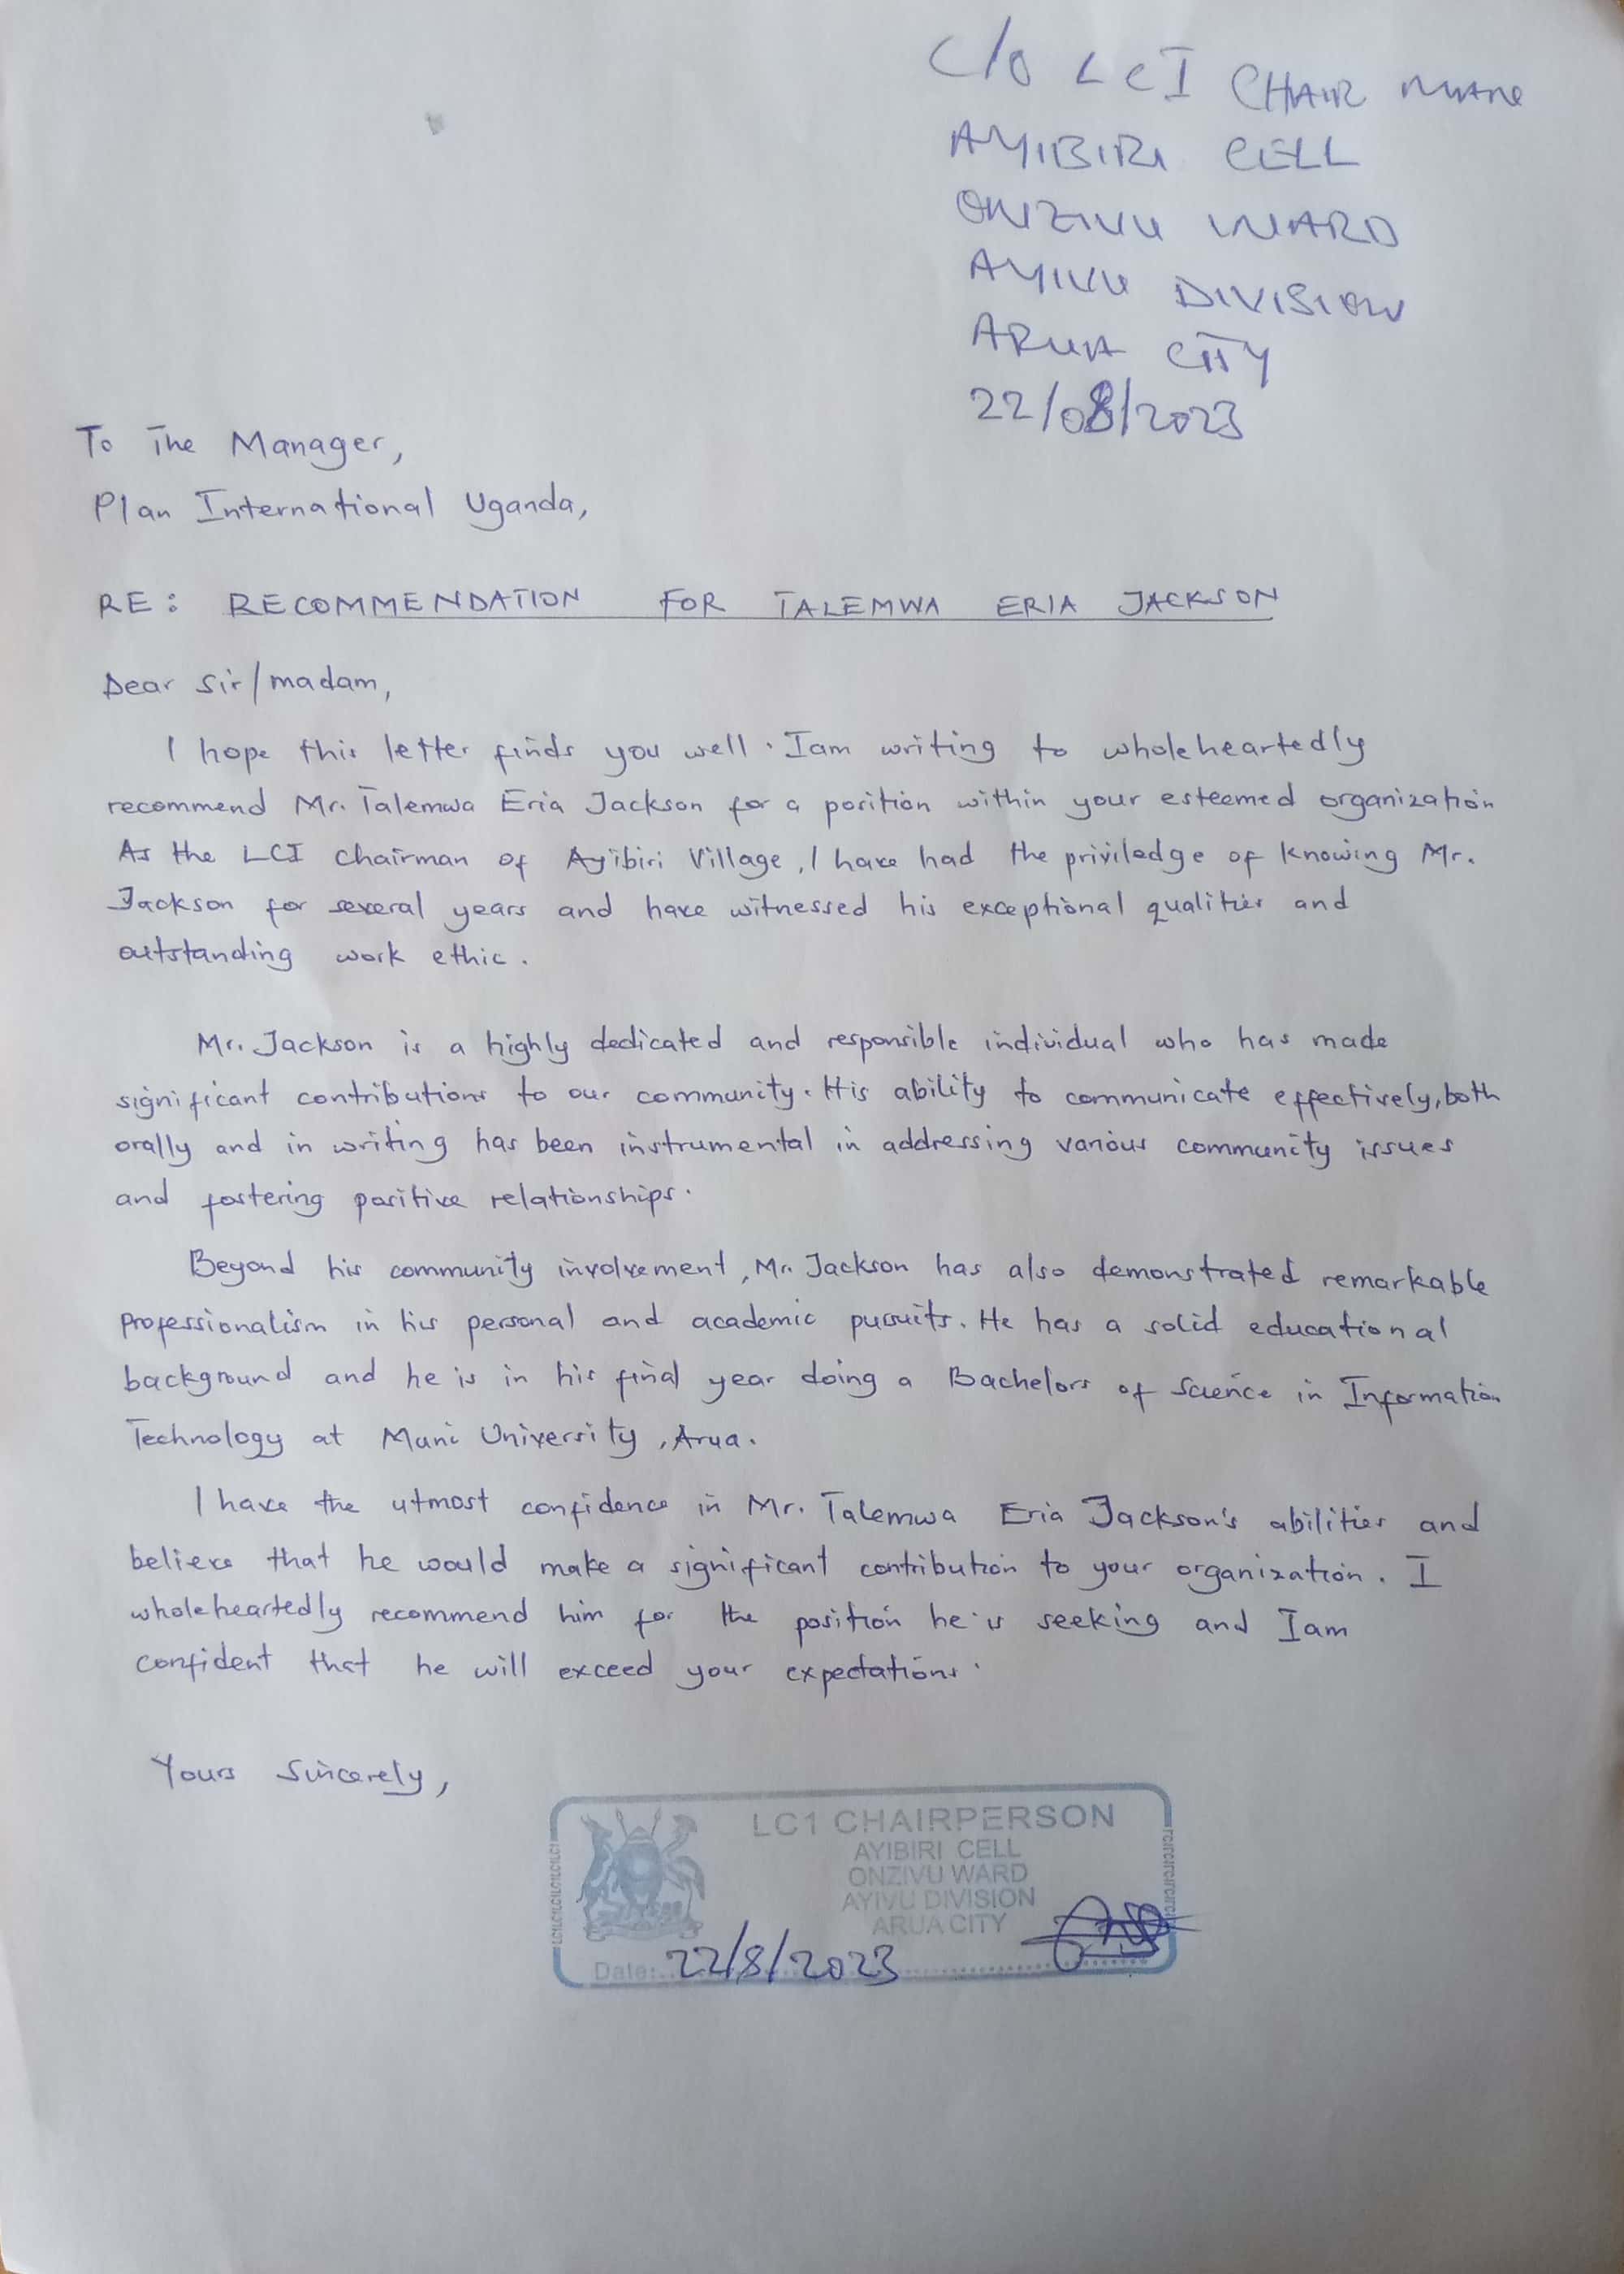 C/O LCI CHAIR MAN
AYIBIRI CELL
ONZIVU WARD
AYIVU DIVISION
ARUA CITY
22/08/2023
To The Manager,
Plan International Uganda,
RE: RECOMMENDATION FOR TALEMWA ERIA JACKSON
Dear Sir/madam,
I hope this letter finds you well. Iam writing to wholeheartedly
recommend Mr. Talemwa Eria Jackson for a position within your esteemed organization
As the LCI Chairman of Ayibiri Village, I have had the priviledge of knowing Mr.
Jackson for several years and have witnessed his exceptional qualities and
outstanding work ethic.
Mr. Jackson is a highly dedicated and responsible individual who has made
significant contributions to our community. His ability to communicate effectively, both
orally and in writing has been instrumental in addressing various community issues
and fostering positive relationships.
Beyond his community involvement, Mr. Jackson has also demonstrated remarkable
professionalism in his personal and academic pursuits. He has a solid educational
background and he is in his final year doing a Bachelors of Science in Information
Technology at Muni University, Arua.
I have the utmost confidence in Mr. Talemwa Eria Jackson's abilities and
believe that he would make a significant contribution to your organization. I
wholeheartedly recommend him for the position he is seeking and Iam
confident that he will exceed your expectations.
Yours Sincerely,
LC1 CHAIRPERSON
AYIBIRI CELL
ONZIVU WARD
AYIVU DIVISION
ARUA CITY
Date: 22/8/2023